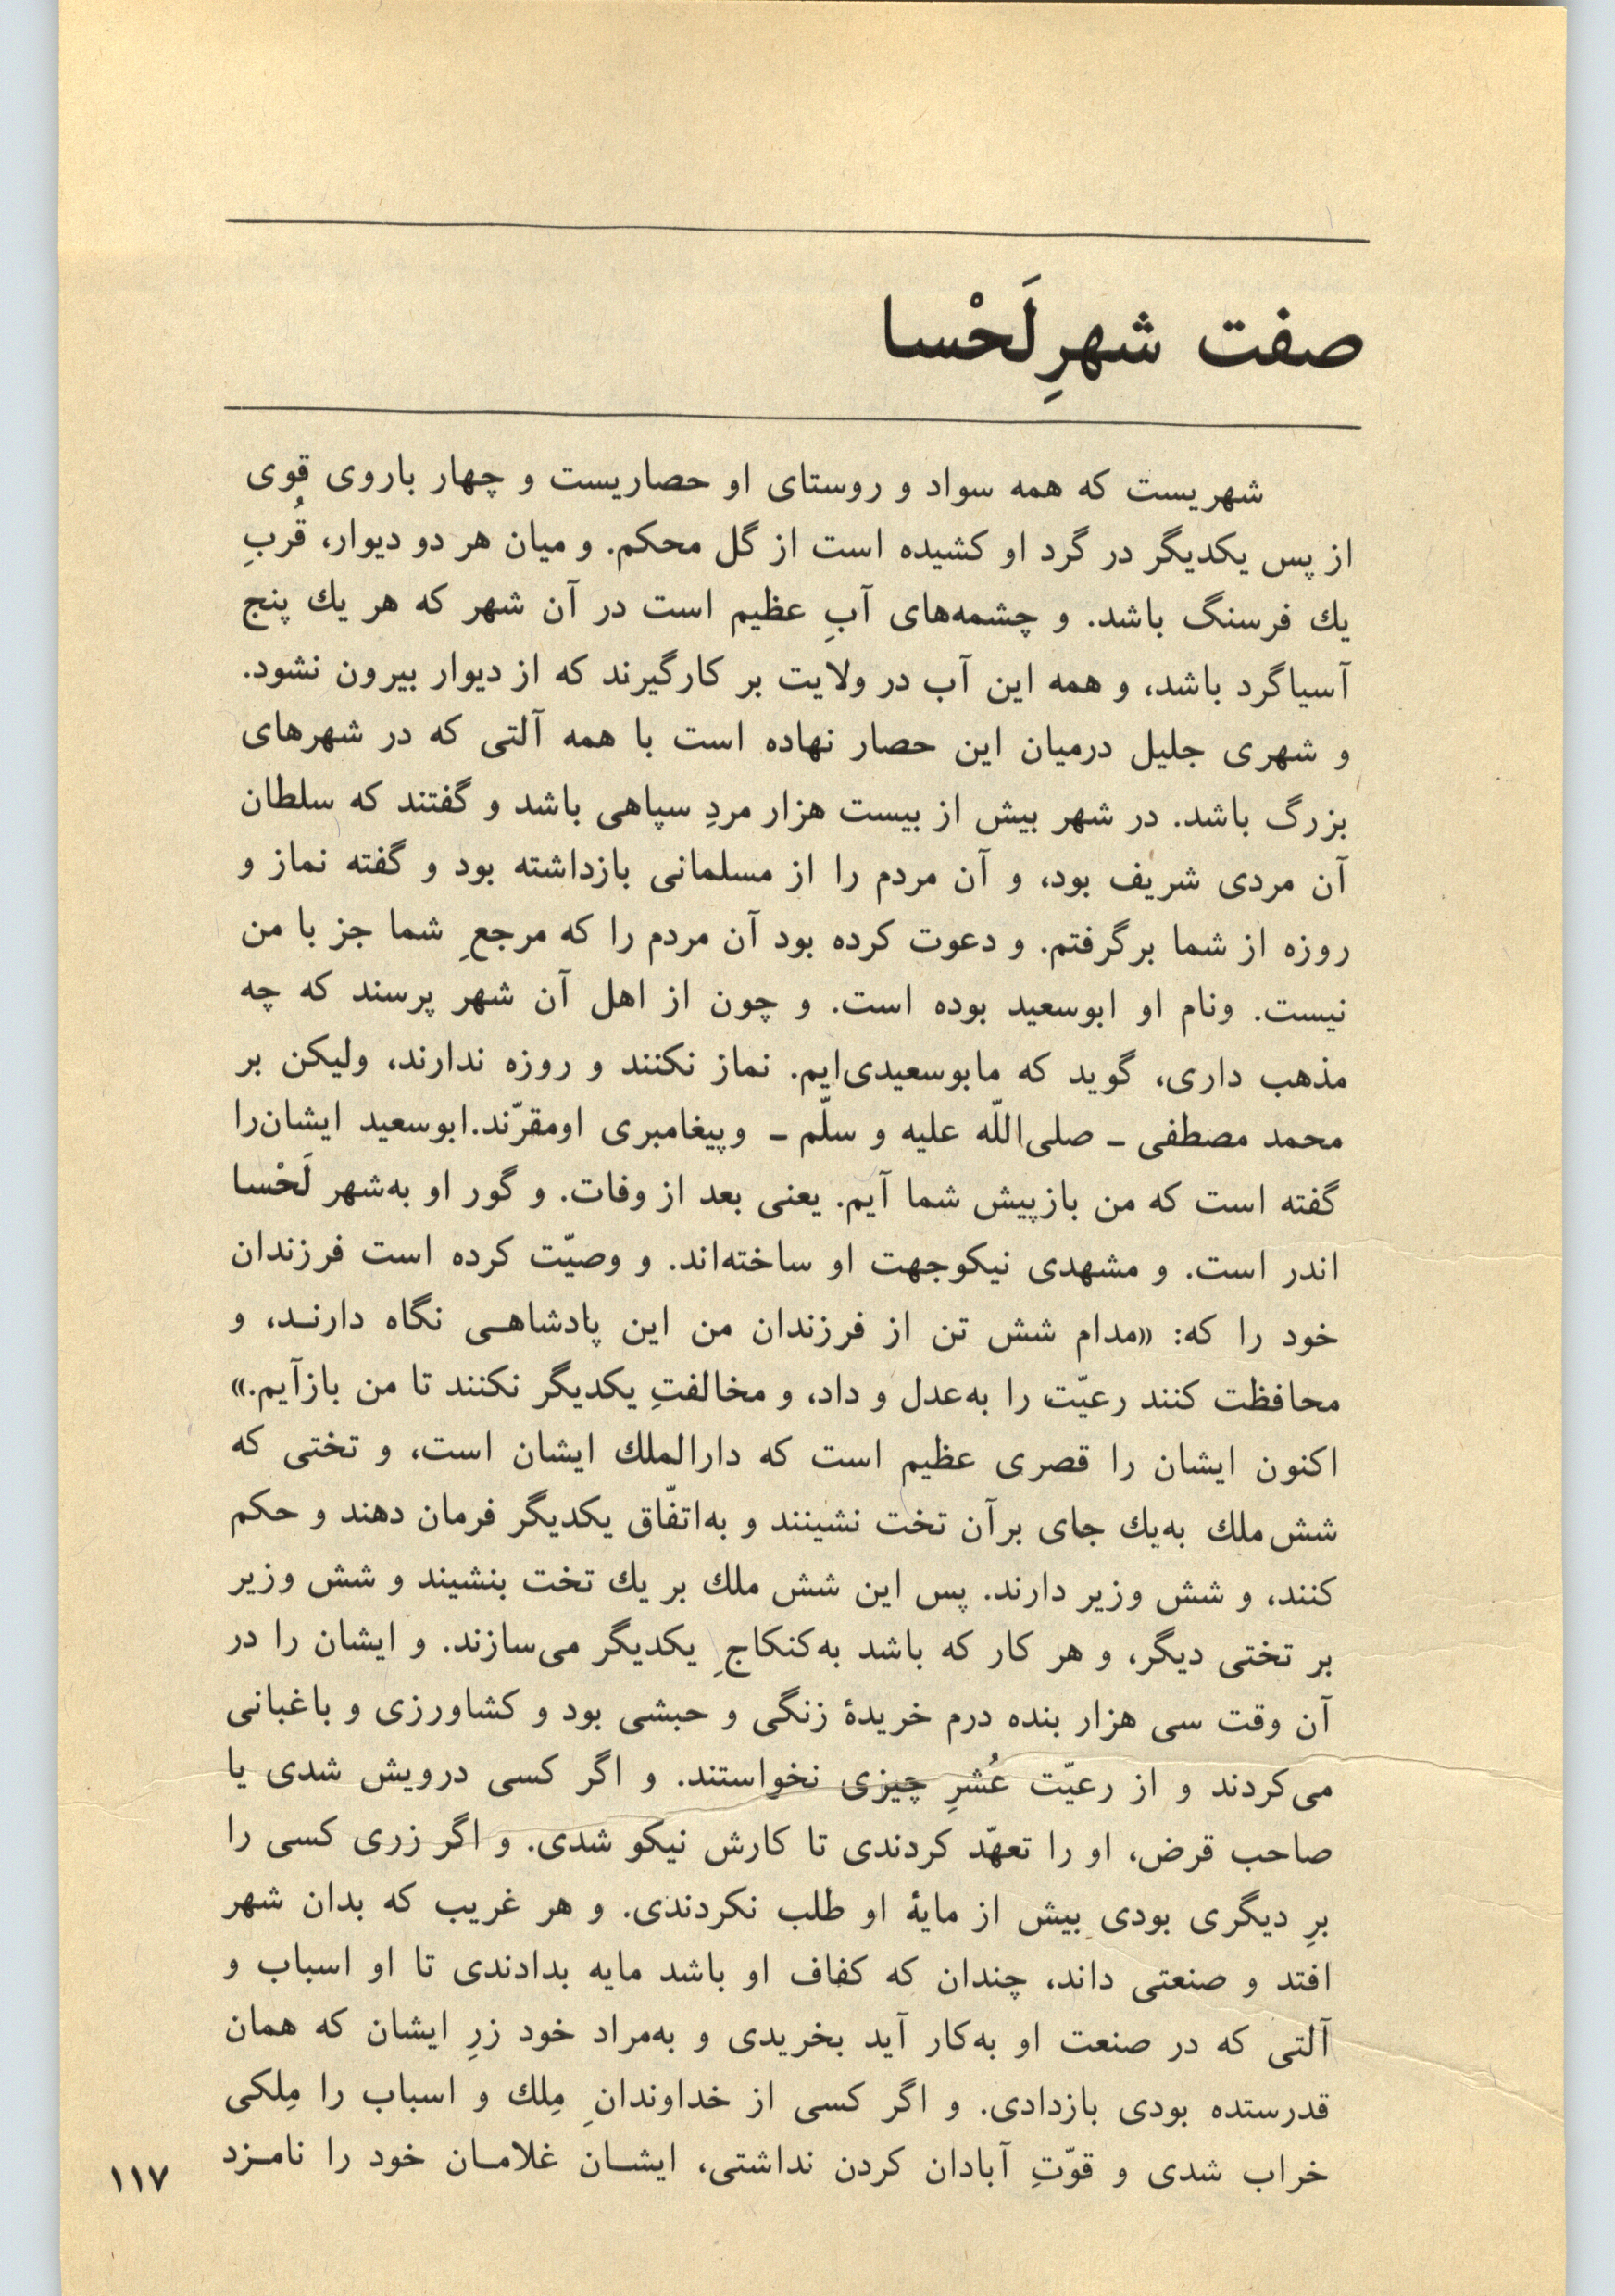 صفت شهرِ لَحْسا
شهریست که همه سواد و روستای او حصاریست و چهار باروی قوی
از پس یکدیگر در گرد او کشیده است از گل محکم. و میان هر دو دیوار، قُربِ
یك فرسنگ باشد. و چشمه‌های آبِ عظیم است در آن شهر که هر یك پنج
آسیاگرد باشد، و همه این آب در ولایت بر کارگیرند که از دیوار بیرون نشود.
و شهری جلیل درمیان این حصار نهاده است با همه آلتی که در شهرهای
بزرگ باشد. در شهر بیش از بیست هزار مردِ سپاهی باشد و گفتند که سلطان
آن مردی شریف بود، و آن مردم را از مسلمانی بازداشته بود و گفته نماز و
روزه از شما برگرفتم. و دعوت کرده بود آن مردم را که مرجعِ شما جز با من
نیست. ونام او ابوسعید بوده است. و چون از اهل آن شهر پرسند که چه
مذهب داری، گوید که مابوسعیدی‌ایم. نماز نکنند و روزه ندارند، ولیکن بر
محمد مصطفی ـ صلی‌اللّه علیه و سلّم ـ وپیغامبری اومقرّند.ابوسعید ایشان‌را
گفته است که من بازپیش شما آیم. یعنی بعد از وفات. و گور او به‌شهر لَحْسا
اندر است. و مشهدی نیکوجهت او ساخته‌اند. و وصیّت کرده است فرزندان
خود را که: «مدام شش تن از فرزندان من این پادشاهـی نگاه دارنـد، و
محافظت کنند رعیّت را به‌عدل و داد، و مخالفتِ یکدیگر نکنند تا من بازآیم.»
اکنون ایشان را قصری عظیم است که دارالملك ایشان است، و تختی که
شش‌ملك به‌یك جای برآن تخت نشینند و به‌اتفّاق یکدیگر فرمان دهند و حکم
کنند، و شش وزیر دارند. پس این شش ملك بر یك تخت بنشیند و شش وزیر
بر تختی دیگر، و هر کار که باشد به‌کنکاجِ یکدیگر می‌سازند. و ایشان را در
آن وقت سی هزار بنده درم خریدهٔ زنگی و حبشی بود و کشاورزی و باغبانی
می‌کردند و از رعیّت عُشرِ چیزی نخواستند. و اگر کسی درویش شدی یا
صاحب قرض، او را تعهّد کردندی تا کارش نیکو شدی. و اگر زری کسی را
برِ دیگری بودی بیش از مایهٔ او طلب نکردندی. و هر غریب که بدان شهر
افتد و صنعتی داند، چندان که کفاف او باشد مایه بدادندی تا او اسباب و
آلتی که در صنعت او به‌کار آید بخریدی و به‌مراد خود زرِ ایشان که همان
قدرستده بودی بازدادی. و اگر کسی از خداوندانِ مِلك و اسباب را مِلکی
خراب شدی و قوّتِ آبادان کردن نداشتی، ایشـان غلامـان خود را نامـزد
۱۱۷